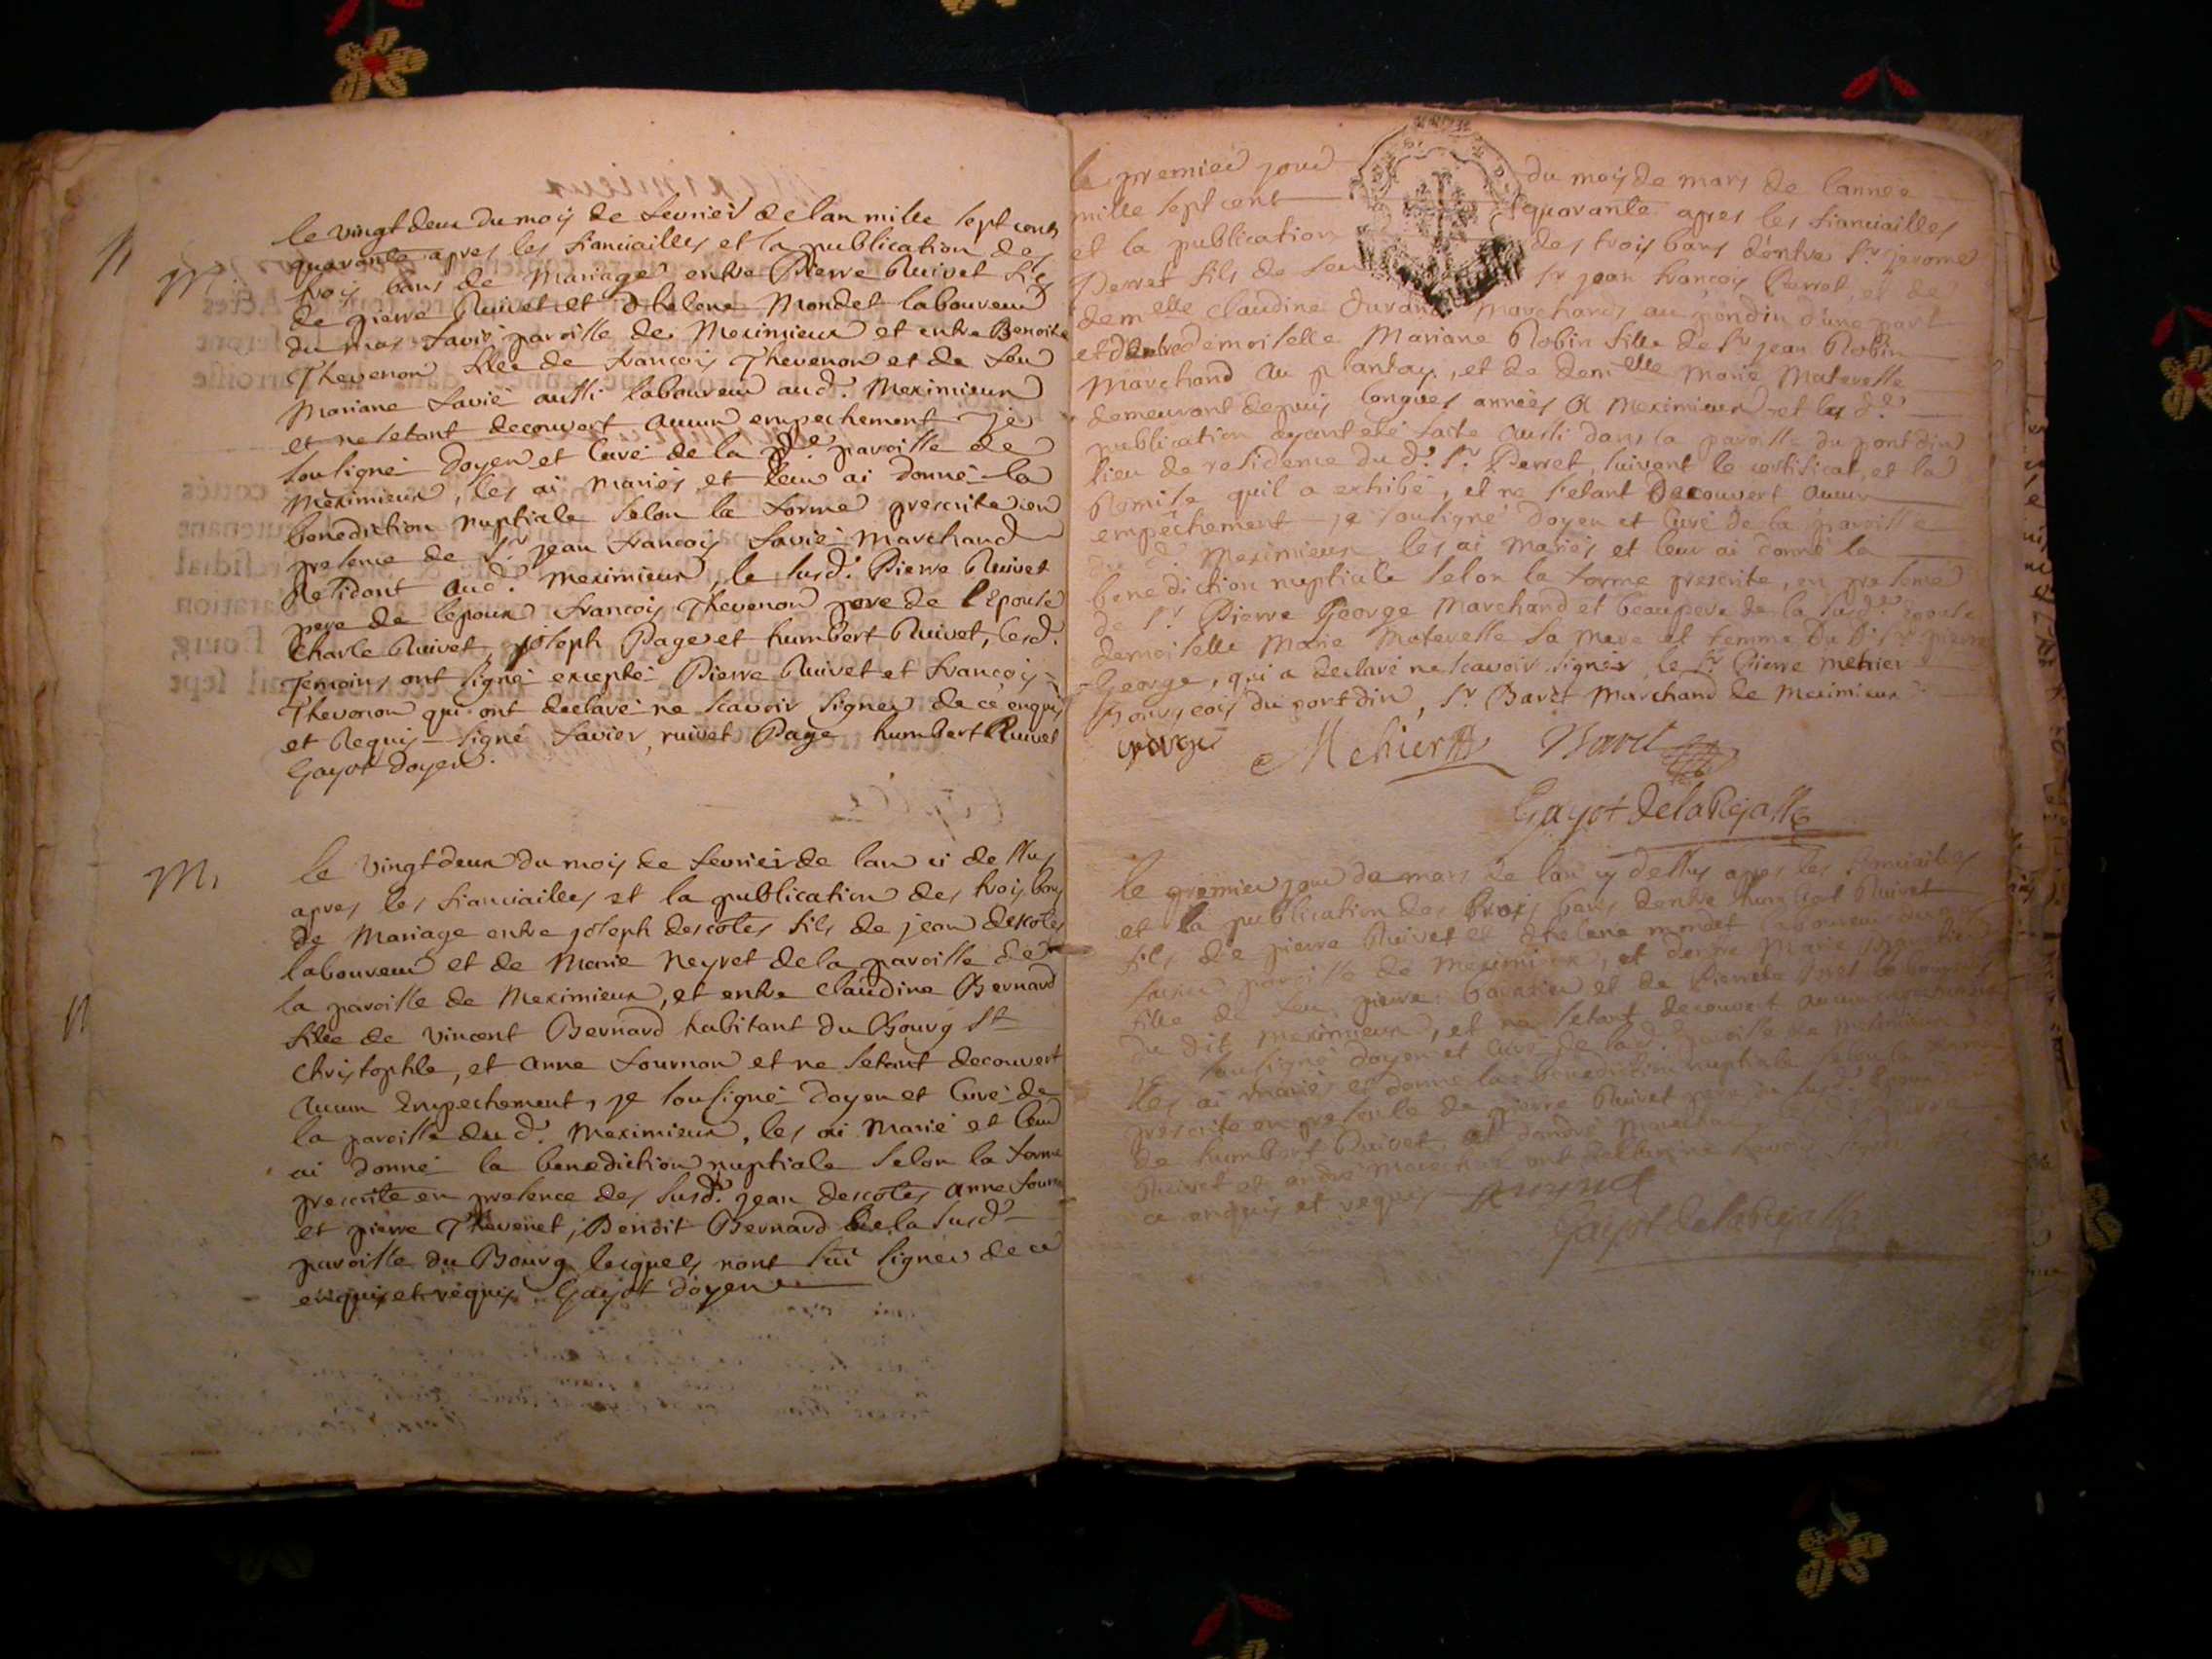 M.
le vingt deux du mois de fevrier de lan mille sept cents
quarante apres les fiancailles et la publication des
trois bans de Mariage entre Pierre Ruivet fils
de pierre Ruivet et dhelene Mondet laboureur
du mas favié paroisse de Meximieux et entre Benoite
Thevenon fille de francois Thevenon et de feu
Mariane favié aussi laboureur aud. Meximieux
et ne setant decouvert aucun empechement je
sousigné doyen et curé de la paroisse de
Meximieux, les ai mariés et leur ai donné la
benediction nuptiale selon la forme prescrite en
presence de Sr. jean francois favié marchand
residant aud. meximieux, le susd. Pierre Ruivet
pere de lepoux francois Thevenon pere de l'Epouse
Charle Ruivet, joseph Page et humbert Ruivet, lesd.
Temoins ont signé excepté Pierre Ruivet et francois
Thevenon qui ont declaré ne scavoir signer de ce enquis
et Requis signé favier, ruivet Page humbert Ruivet
Gayot doyen.
M.
le vingt deux du mois de fevrier de lan ci dessus
apres les fiancailles et la publication des trois bans
de Mariage entre joseph descotes fils de jean descotes
laboureur et de Marie Neyret de la paroisse de
la paroisse de Meximieux, et entre claudine Bernard
fille de vincent Bernard habitant du Bourg St
christophle, et anne fournon et ne setant decouvert
aucun Empechement, je sousigné doyen et curé de
la paroisse du d. Meximieux, les ai Marié et leur
ai donné la benediction nuptiale selon la forme
prescrite en presence des susd. jean descotes anne
et pierre Thevenet, Benoit Bernard de la susd
paroisse du Bourg lesquels nont sçu signer de ce
enquis et requis Gayot doyen
le premier jour du mois de mars de lannee
mille sept cent quarante apres les fiancailles
et la publication des trois bans d'entre Sr. jerome
Perret fils de feu Sr jean françois Perret, et de
demelle claudine durand marchands au pondin d'une part
et d'autre demoiselle Mariane Robin fille de Sr jean Robin
marchand au plantay, et de demelle marie Materesse
demeurant depuis longues années a meximieux et la d.
publication ayant eté faite aussi dans la paroisse du pont din
lieu de residence du d. Sr. Perret, suivant le certificat, et la
Remise quil a exhibé, et ne s'etant decouvert aucun
empêchement je sousigné doyen et curé de la paroisse
du d. Meximieux les ai mariés et leur ai donné la
benediction nuptiale selon la forme prescrite, en presence
de Sr. Pierre George marchand et beaupere de la susd. Epouse
demoiselle Marie Materesse sa mere et femme du Sr pierre
George, qui a declaré ne scavoir signer, le Sr Pierre mehier
Bourgeois du pontdin, Sr Baret Marchand de Meximieux
george Mehier Baret
Gayot de la Rejasse
le premier jour de mars de lan cy dessus apres les fiancailles
et la publication des trois bans dentre humbert Ruivet
fils de pierre Ruivet et dhelene mondet laboureur du
favié paroisse de meximieux, et dentre Marie
fille de feu pierre et de Pierrette
du dit meximieux, et ne setant decouvert aucun
je sousigné doyen et curé de lad. paroisse de meximieux
les ai mariés et donné la benediction nuptiale selon la forme
prescrite en presence de pierre Ruivet pere du susd. Epoux
de humbert Ruivet, et
Ruivet et andré ont declaré ne scavoir signer
ce enquis et requis
Gayot de la Rejasse